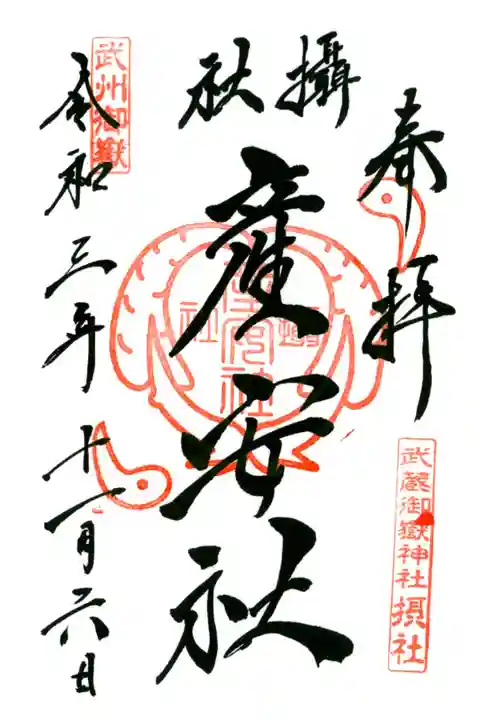 奉拝
武蔵御嶽神社摂社
攝社
産安社
攝社
産安社
武州御嶽
令和三年十一月六日